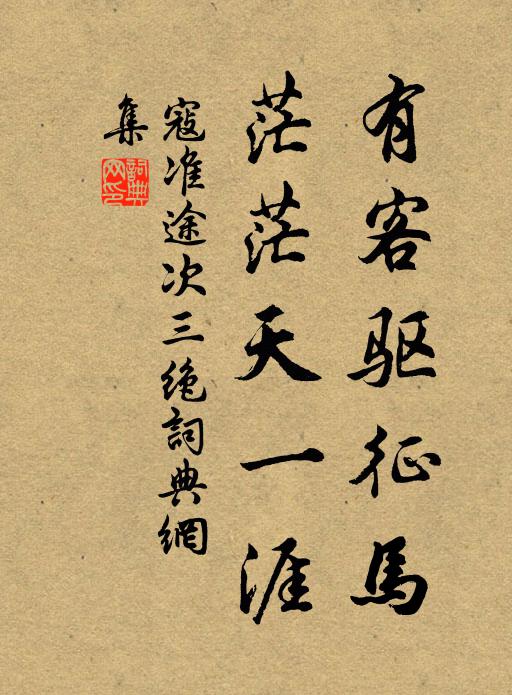 有客驱征馬
茫茫天一涯
寇准途次三绝詞典網
集
詞典网印